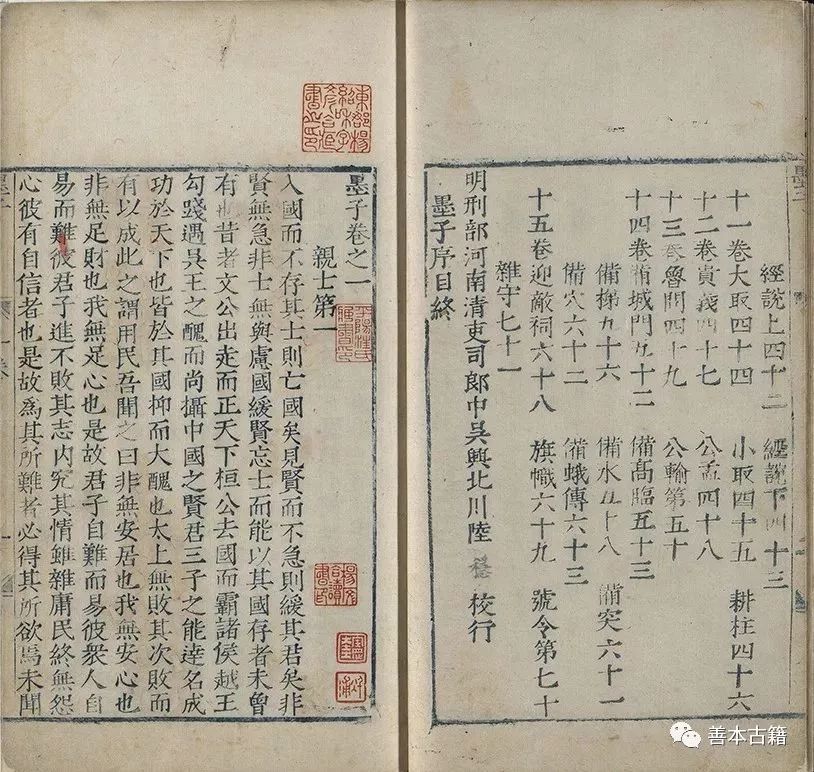 經說上四十二 經說下四十三
十一卷大取四十四 小取四十五 耕柱四十六
十二卷貴義四十七 公孟四十八
十三卷魯問四十九 公輸第五十
十四卷備城門五十二 備高臨五十三
備梯五十六 備水五十八 備突六十一
備穴六十二 備蛾傳六十三
十五卷迎敵祠六十八 旗幟六十九 號令第七十
雜守七十一
明刑部河南清吏司郎中吳興北川陸 穩 校行
墨子序目終
墨子卷之一
親士第一
入國而不存其士則亡國矣見賢而不急則緩其君矣非
賢無急非士無與慮國緩賢忘士而能以其國存者未曾
有也昔者文公出走而正天下桓公去國而霸諸侯越王
勾踐遇吳王之醜而尚攝中國之賢君三子之能達名成
功於天下也皆於其國抑而大醜也太上無敗其次敗而
有以成此之謂用民吾聞之曰非無安居也我無安心也
非無足財也我無足心也是故君子自難而易彼衆人自
易而難彼君子進不敗其志内究其情雖雜庸民終無怨
心彼有自信者也是故爲其所難者必得其所欲焉未聞
善本古籍